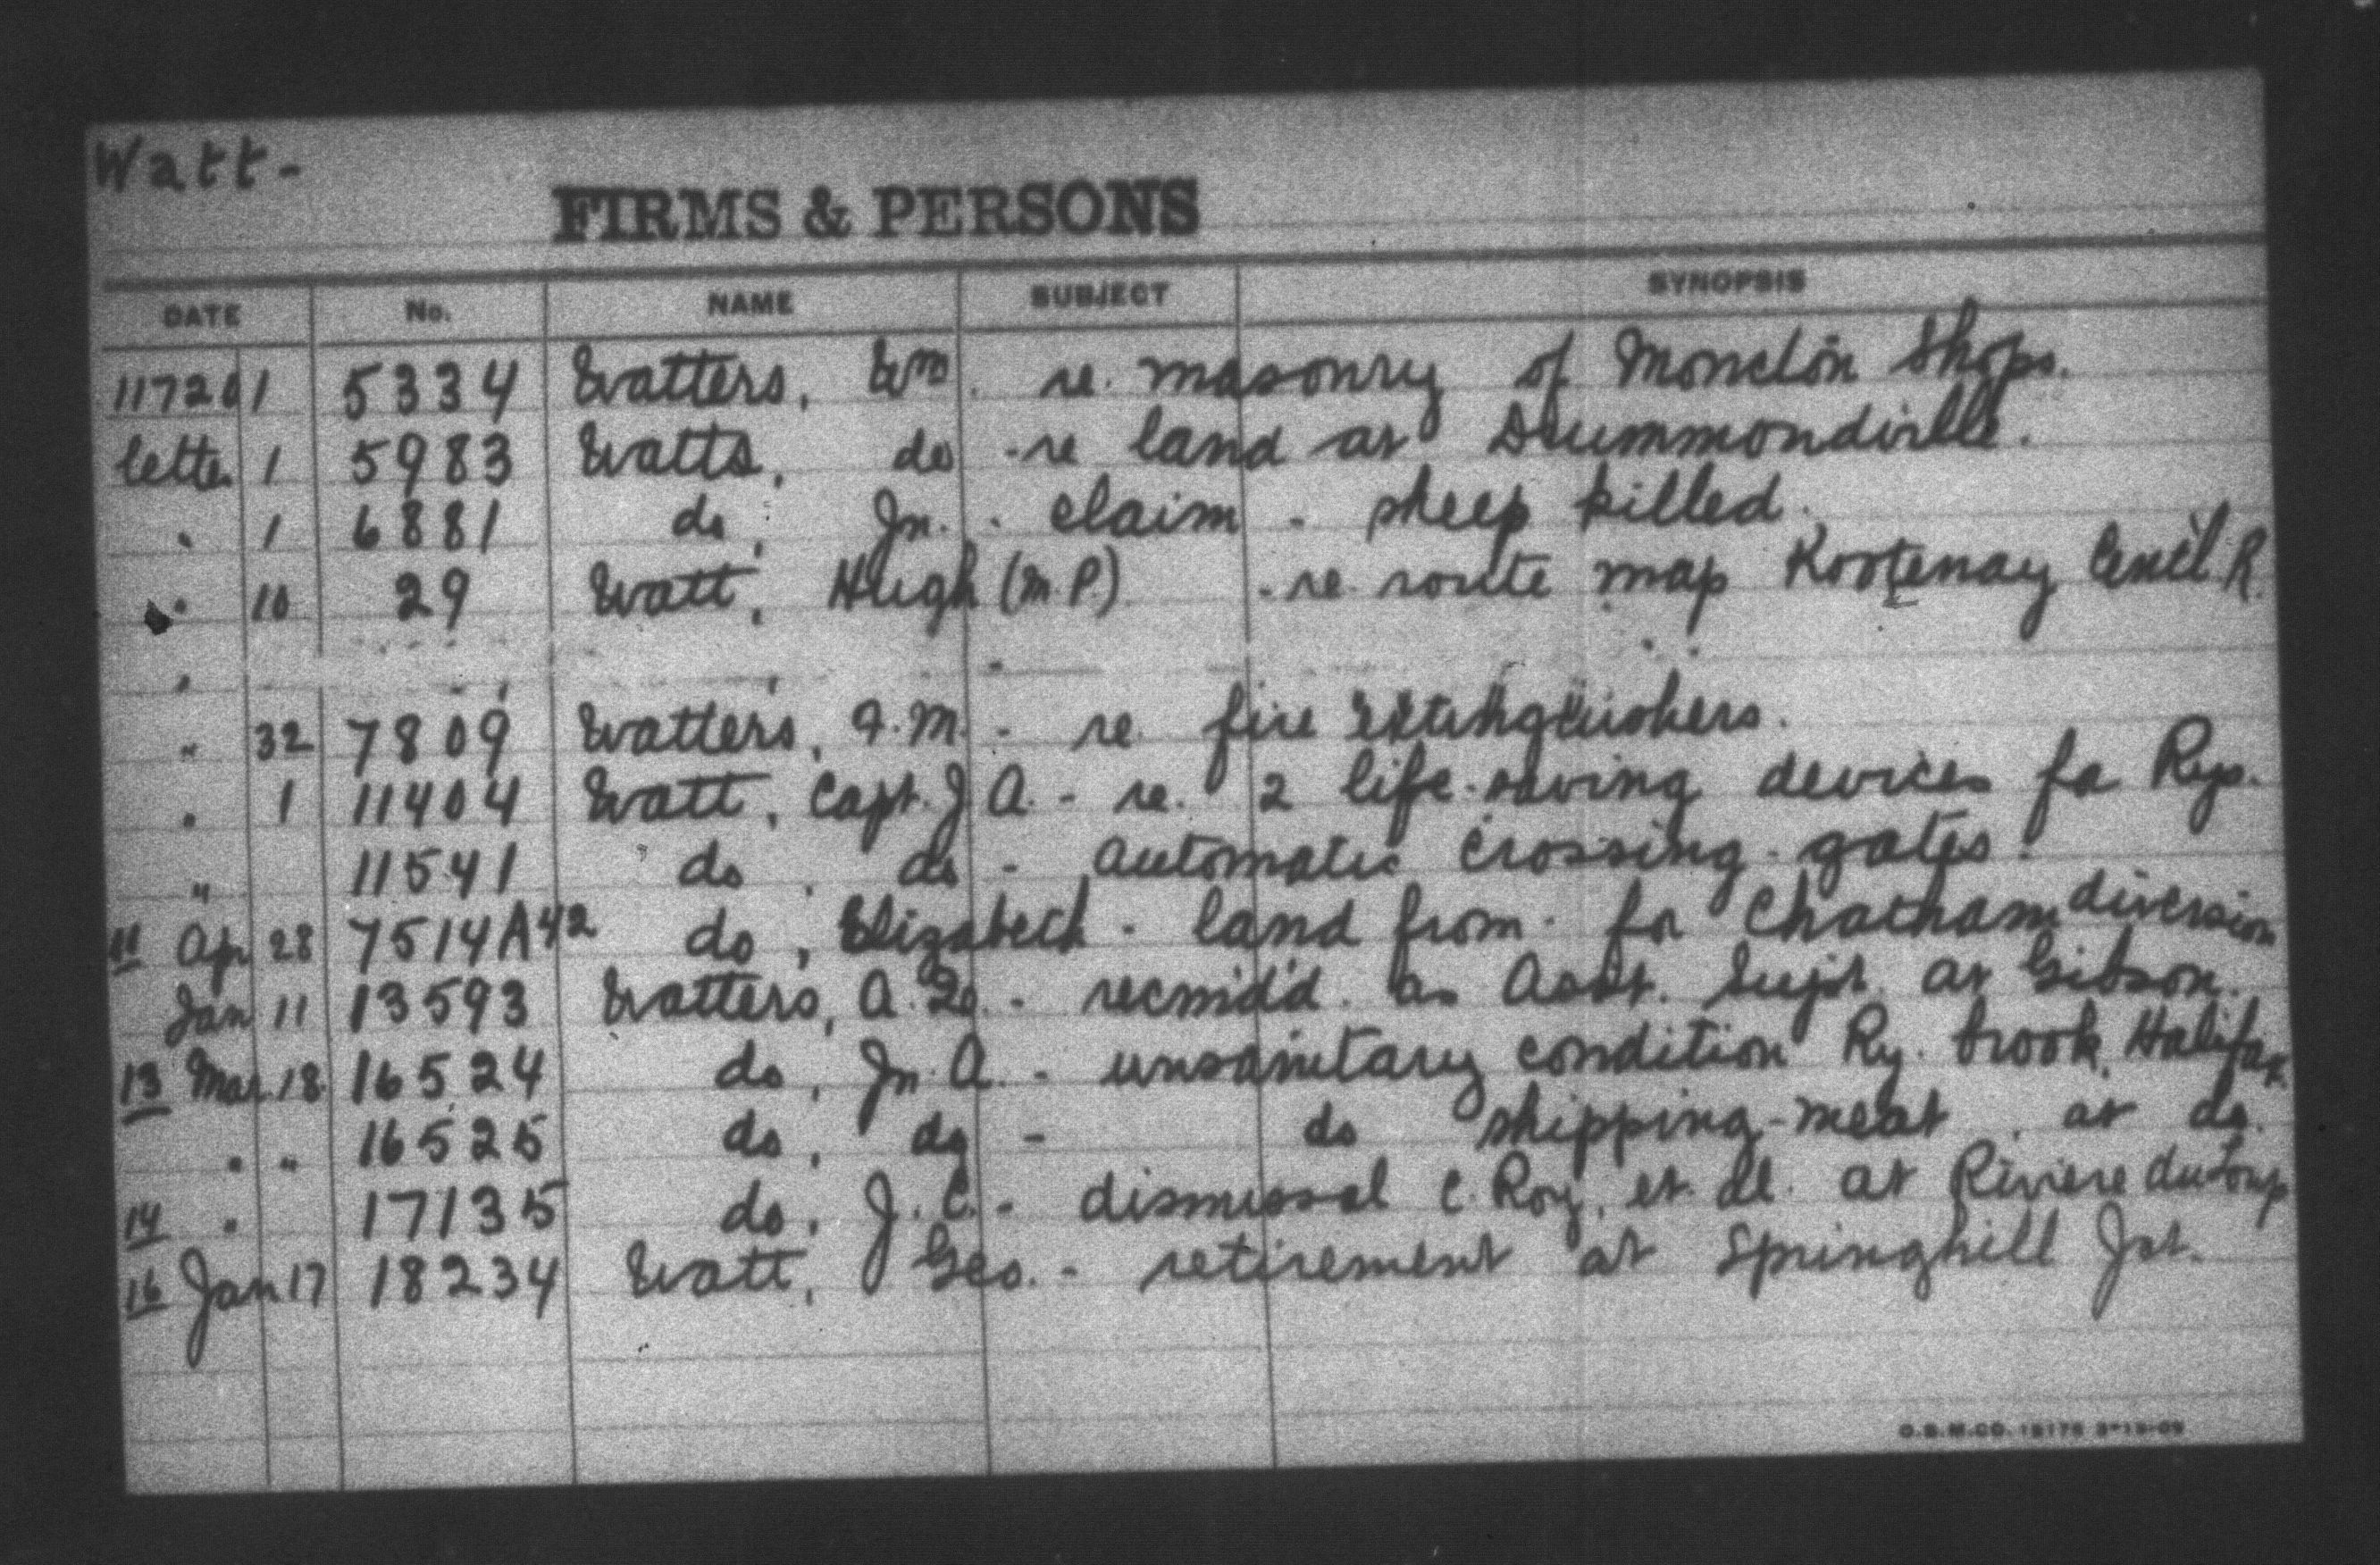 Watt-
FIRMS & PERSONS
DATE No. NAME SUBJECT SYNOPSIS
11720 1 5334 Watters, Wm. re. masonry of Moncton Shops.
letter 1 5983 Watts, do -re land at Drummondville.
" 1 6881 do, Jn. - claim - sheep killed.
" 10 29 Watt, Hugh (M.P.) - re route map Kootenay Cent'l. R.
"
" 32 7809 Watters, A.M. - re. fire extinguishers.
" 1 11404 Watt, Capt. J.A. - re. 2 life-saving devices for Rys.
" 11541 do, do - Automatic crossing-gates.
11 Apr 28 7514A42 do, Elizabeth - land from - for Chatham diversion
Jan 11 13593 Watters, A. - recmd'd. as Asst. Supt. at Gibson.
13 Mar. 18 16524 do, Jn. A. - unsanitary condition Ry. brook, Halifax.
" " 16525 do, do - do shipping-meat at do.
14 " 17135 do, J.C. - dismissal C. Roy, et. al. at Riviere du Loup
16 Jan 17 18234 Watt, Geo. - retirement at Springhill Jct.